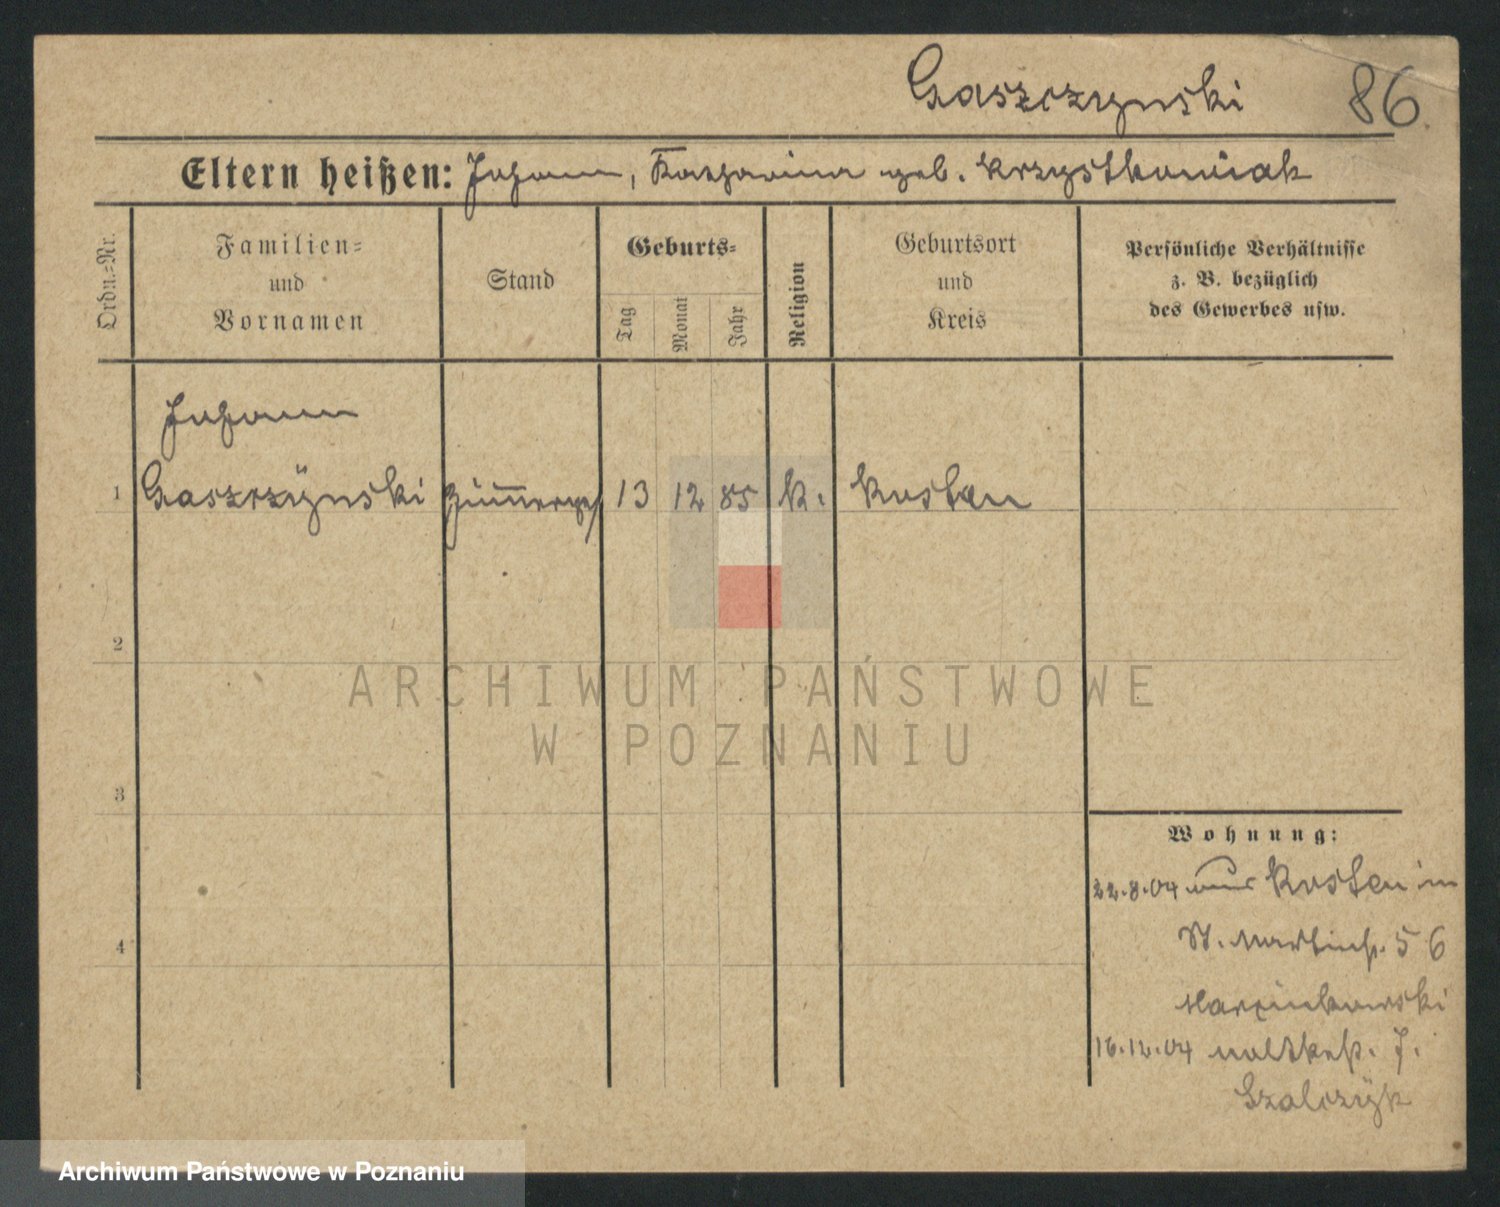 Gaszczynski 86
Eltern heißen: Johann, Katharina geb. Krzystkowiak
Ordn.-Nr.
Familien-
und
Vornamen
Stand
Geburts-
Tag
Monat
Jahr
Religion
Geburtsort
und
Kreis
Persönliche Verhältnisse
z. B. bezüglich
des Gewerbes usw.
Johann
1 Gaszczÿnski 13 12 85 k. Kosten
2
3
Wohnung:
22.8.04 aus Kosten in
St. Martinstr. 56
Marcinkowski
4
16.12.04 7.
Szalczÿk
ARCHIWUM PAŃSTWOWE
W POZNANIU
Archiwum Państwowe w Poznaniu